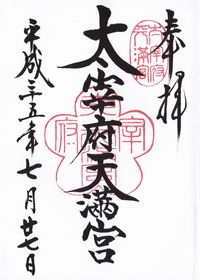 奉拝
太宰府天満宮
平成二五年七月廿七日